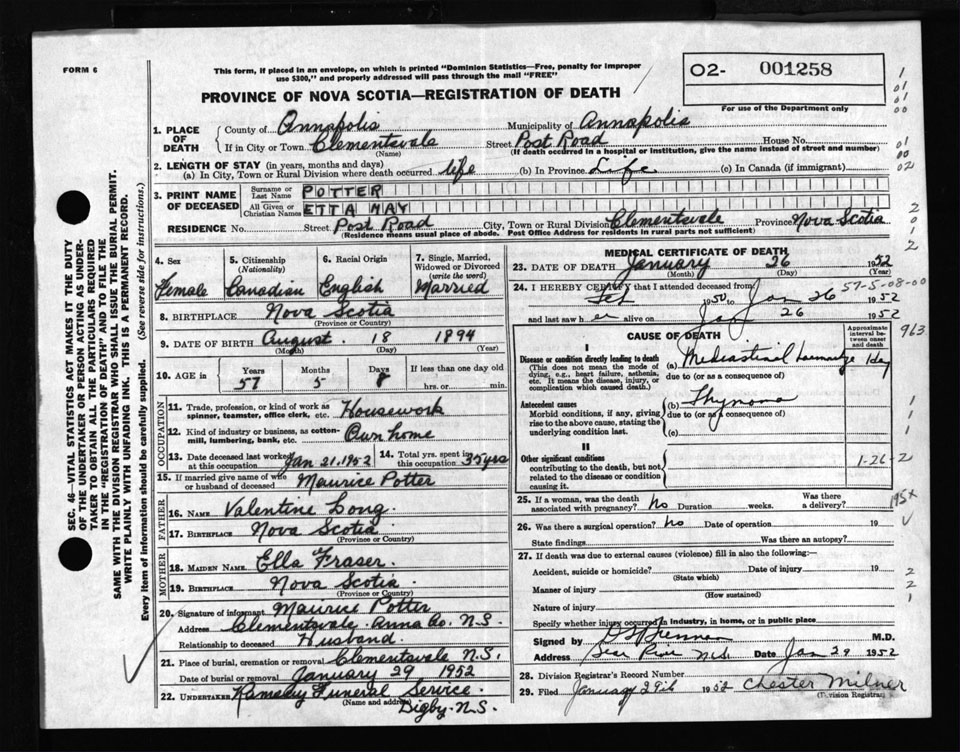 FORM 6
This form, if placed in an envelope, on which is printed "Dominion Statistics—Free, penalty for improper
use $300," and properly addressed will pass through the mail "FREE"
O2- 001258
For use of the Department only
PROVINCE OF NOVA SCOTIA—REGISTRATION OF DEATH
1. PLACE OF DEATH County of Annapolis Municipality of Annapolis
If in City or Town Clementsvale (Name) Street Post Road House No.
(If death occurred in a hospital or institution, give the name instead of street and number)
2. LENGTH OF STAY (in years, months and days)
(a) In City, Town or Rural Division where death occurred life (b) In Province Life (c) In Canada (if immigrant)
3. PRINT NAME OF DECEASED Surname or Last Name POTTER
All Given or Christian Names ETTA MAY
RESIDENCE No. Street Post Road City, Town or Rural Division Clementsvale Province Nova Scotia
(Residence means usual place of abode. Post Office Address for residents in rural parts not sufficient)
SEC. 46—VITAL STATISTICS ACT MAKES IT THE DUTY
OF THE UNDERTAKER OR PERSON ACTING AS UNDER-
TAKER TO OBTAIN ALL THE PARTICULARS REQUIRED
IN THE "REGISTRATION OF DEATH" AND TO FILE THE
SAME WITH THE DIVISION REGISTRAR WHO SHALL ISSUE THE BURIAL PERMIT.
WRITE PLAINLY WITH UNFADING INK. THIS IS A PERMANENT RECORD.
Every item of information should be carefully supplied. (See reverse side for instructions.)
4. Sex Female
5. Citizenship (Nationality) Canadian
6. Racial Origin English
7. Single, Married, Widowed or Divorced (write the word) Married
8. BIRTHPLACE Nova Scotia
(Province or Country)
9. DATE OF BIRTH August 18 1894
(Month) (Day) (Year)
10. AGE in Years 57 Months 5 Days 8 If less than one day old hrs. or min.
OCCUPATION
11. Trade, profession or kind of work as spinner, teamster, office clerk, etc. Housework
12. Kind of industry or business, as cotton-mill, lumbering, bank, etc. Own home
13. Date deceased last worked at this occupation Jan 21. 1952 14. Total yrs. spent in this occupation 35 yrs
15. If married give name of wife or husband of deceased Maurice Potter
FATHER
16. NAME Valentine Long
17. BIRTHPLACE Nova Scotia
(Province or Country)
MOTHER
18. MAIDEN NAME Ella Fraser
19. BIRTHPLACE Nova Scotia
(Province or Country)
20. Signature of informant Maurice Potter
Address Clementsvale Anna Co. N.S.
Relationship to deceased Husband.
21. Place of burial, cremation or removal Clementsvale N.S.
Date of burial or removal January 29 1952
22. UNDERTAKER Funeral Service.
(Name and address) Digby. N.S.
MEDICAL CERTIFICATE OF DEATH
23. DATE OF DEATH January 26 1952
(Month) (Day) (Year)
24. I HEREBY CERTIFY that I attended deceased from 57-5-08-00
1950 to Jan 26 1952
and last saw her alive on Jan 26 1952
CAUSE OF DEATH
Approximate interval between onset and death
963
I
Disease or condition directly leading to death
(This does not mean the mode of dying, e.g., heart failure, asthenia, etc. It means the disease, injury, or complication which caused death.)
(a) Mediastinal 1 day
due to (or as a consequence of)
Antecedent causes
Morbid conditions, if any, giving rise to the above cause, stating the underlying condition last.
(b) Thymoma
due to (or as a consequence of)
(c)
II
Other significant conditions
contributing to the death, but not related to the disease or condition causing it.
1-26-2
25. If a woman, was the death associated with pregnancy? No Duration weeks. Was there a delivery?
26. Was there a surgical operation? No Date of operation 19
State findings Was there an autopsy?
27. If death was due to external causes (violence) fill in also the following:—
Accident, suicide or homicide? Date of injury 19
(State which)
Manner of injury
(How sustained)
Nature of injury
Specify whether injury occurred in industry, in home, or in public place
Signed by M.D.
Address Bear River N.S. Date Jan 29 1952
28. Division Registrar's Record Number
29. Filed January 29th 1952 Chester Milner
(Division Registrar)